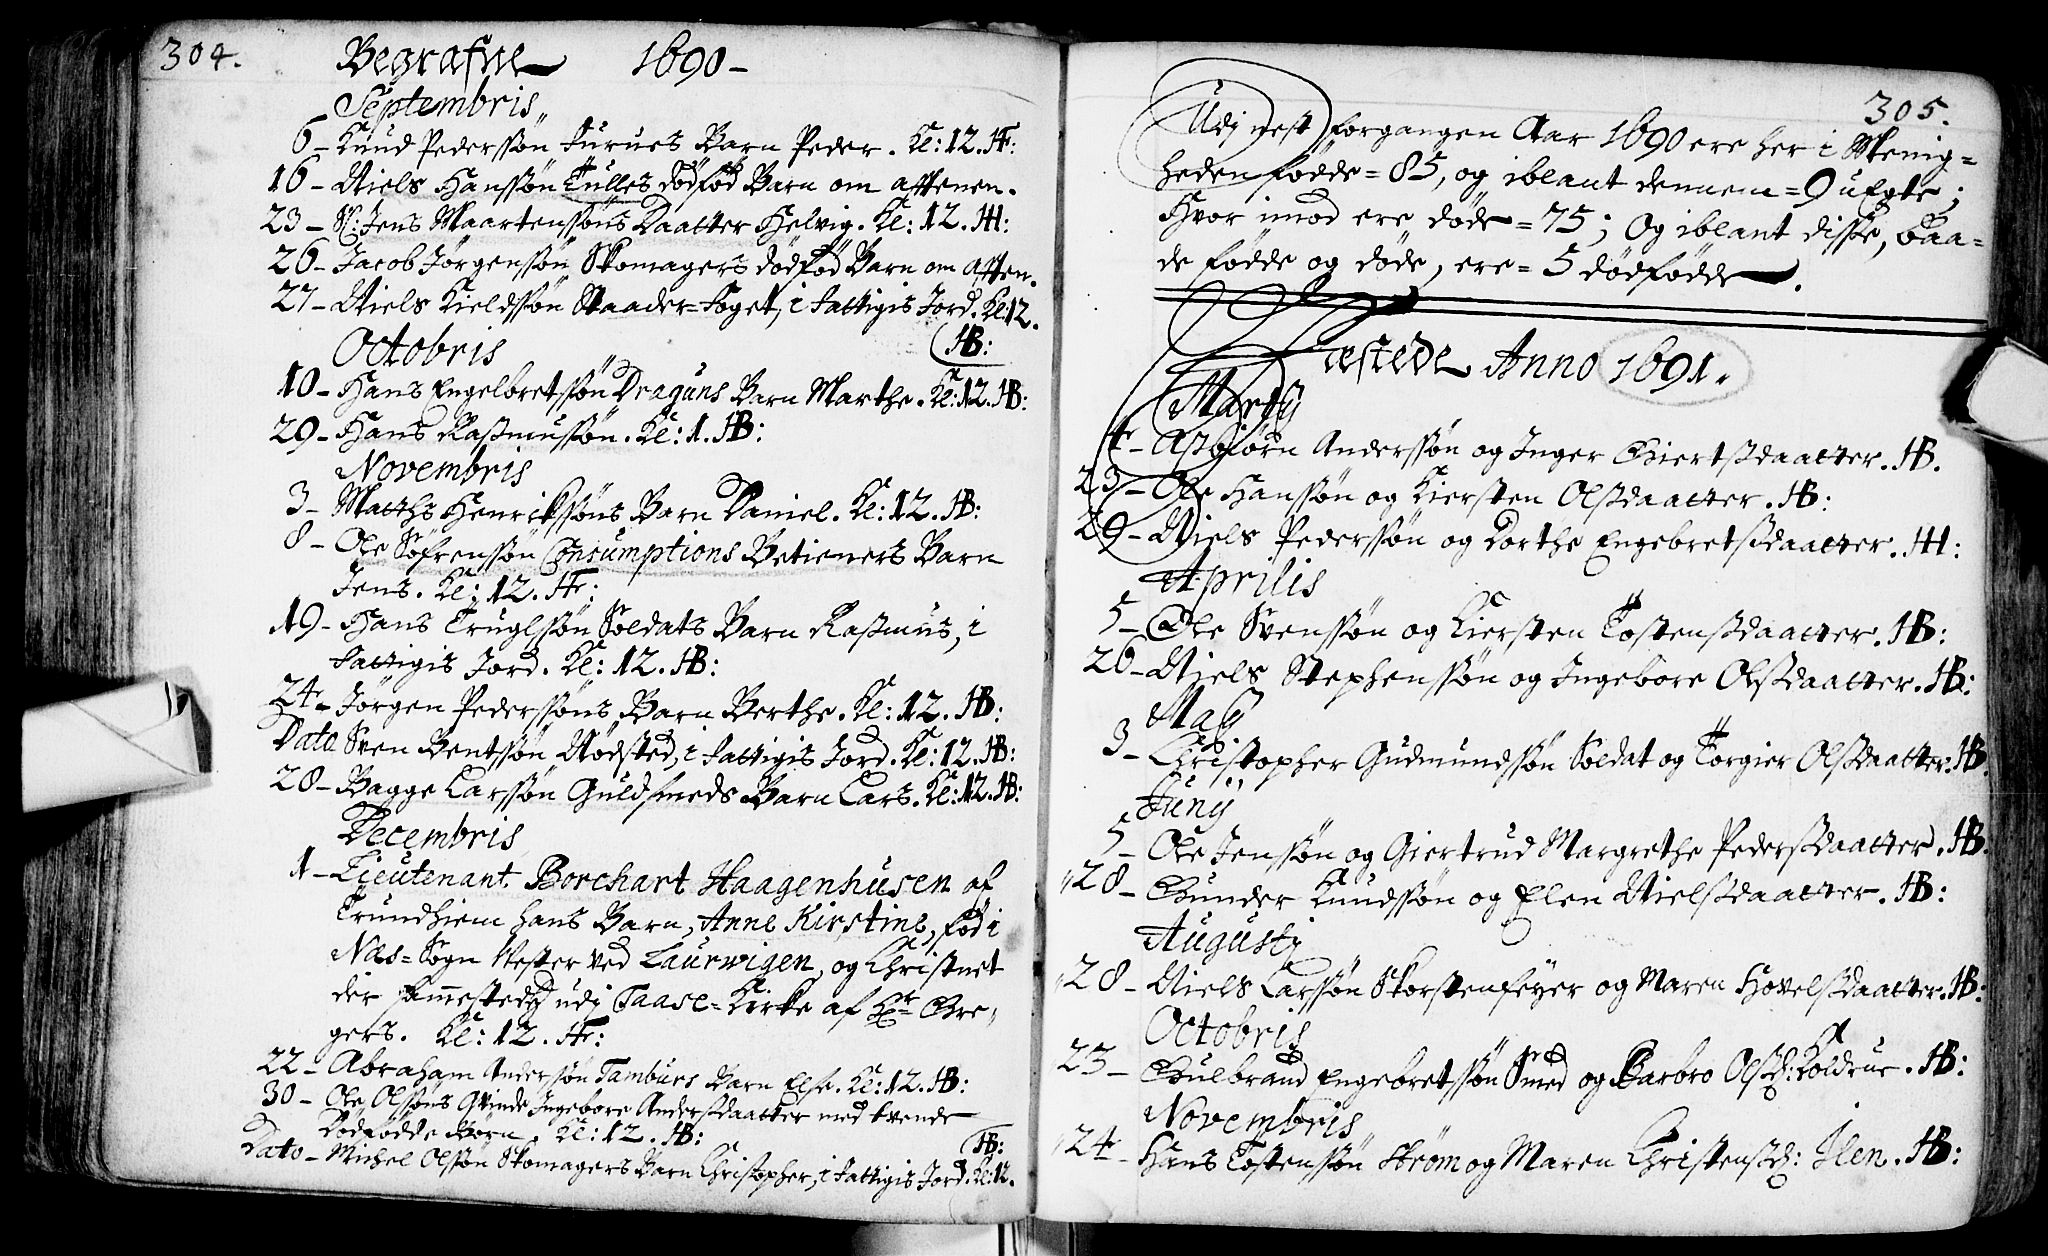 304.
Begrafne 1690 –
Septembris
6 – Knud Pederssøn Furues Barn Peder. Kl: 12. HF:
16 – Niels Hanssøn Tulles dødfød Barn om afftenen.
23 – Sl: Jens Maartenssøns Daatter Helvig. Kl: 12. HH:
26 – Jacob Jørgenssøn Skomagers dødfød Barn om Afften.
27 – Niels Kieldssøn Staader=Foget, i Fattigis Jord. Kl: 12.
HB:
Octobris
10 – Hans Engelbretssøn Draguns Barn Marthe. Kl: 12. HB:
29 – Hans Rasmussøn. Kl: 1. HB:
Novembris
3 – Matths Henrikssøns Barn Daniel. Kl: 12. HB:
8 – Ole Søfrenssøn Consumptions Betieners Barn
Jens. Kl: 12. HF:
19 – Hans Truglssøn Soldats Barn Rasmus, i
Fattigis Jord. Kl: 12. HB:
24 – Jørgen Pederssøns Barn Berthe. Kl: 12. HB:
Dato Sven Bentssøn Nødsted, i Fattigis Jord. Kl: 12. HB:
28 – Bagge Larssøn Guldsmeds Barn Lars. Kl: 12. HB:
Decembris
1 – Lieutenant Borchart Haagenhusen af
Trundhiem hans Barn, Anne Kirstine, fød i
Næs=Sogn Vester ved Laurwigen, og Christnet
der sammesteds udj Taase=Kirke af Hr Gre=
gers. Kl: 12. HF:
22 – Abraham Anderssøn Tamburs Barn Else. Kl: 12. HB:
30 – Ole Olssøns Qvinde Ingebore Andersdaatter med tvende
Dødfødde Børn. Kl: 12. HB:
HB:
Dato – Michel Olssøn Skomagers Barn Christopher, i Fattigis Jord. Kl: 12.
305.
Udj nest forgangen Aar 1690 ere her i Menig=
heden fødde = 85, og iblant dennem = 9 uEgte;
Hvor imod ere døde = 75; Og iblant disse, baa=
de fødde og døde, ere = 5 dødfødde.
Fæstede Anno 1691.
Martij
4 – Asbiørn Anderssøn og Inger Giertsdaatter. HB.
23 – Ole Hanssøn og Kiersten Olsdaatter. HB:
29 – Niels Pederssøn og Dorthe Engebretsdaatter. HH:
Aprilis
5 – Ole Svenssøn og Kiersten Tostensdaatter. HB:
26 – Niels Stephenssøn og Ingebore Olsdaatter. HB:
Maij
3 – Christopher Gudmundssøn Soldat og Torgier Olsdaatter. HB.
Junij
5 – Ole Jenssøn og Giertrud Margrethe Pedersdaatter. HB.
28 – Gunder Knudssøn og Elen Nielsdaatter. HB:
Augustj
28 – Niels Larssøn Skorstenfeyer og Maren Hovelsdaatter. HB:
Octobris
23 – Gulbrand Engebretssøn Smed og Barbro Olsd: Koldrue. HB:
Novembris
24 – Hans Tostenssøn Strøm og Maren Christensd: Ilen. HB: